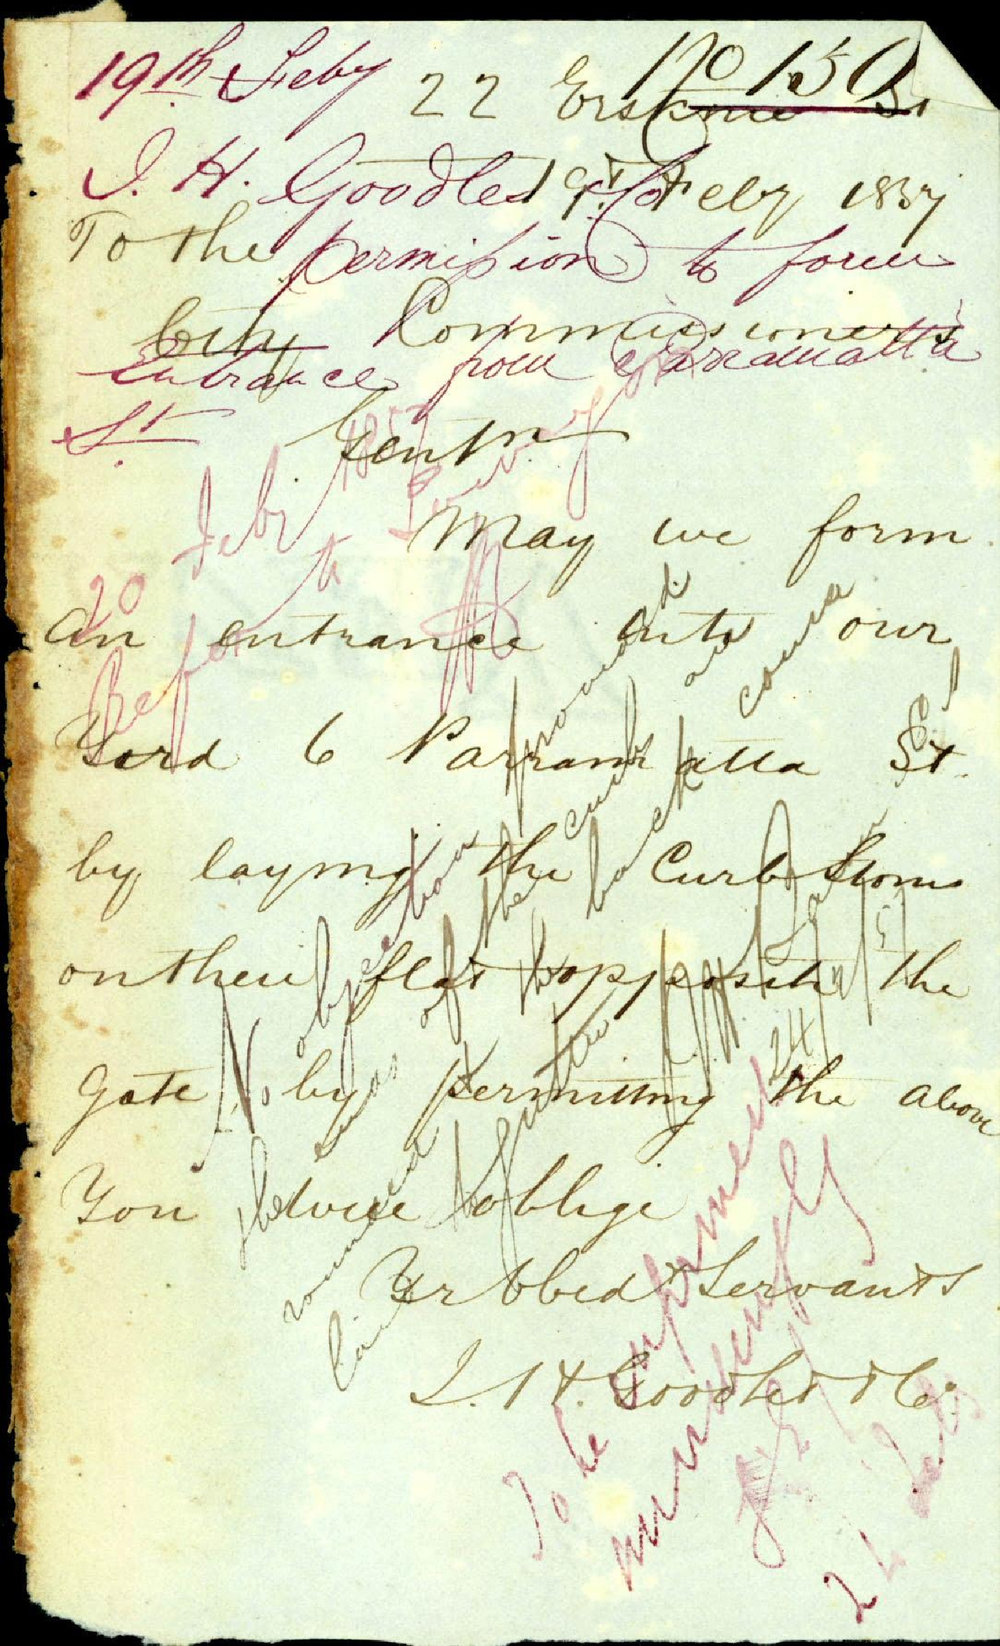 No 150
19th Feby
J. H. Goodlet & Co
permission to form
Entrance from Parramatta
St
22 Erskine St
19th Feby 1857
To the
City Commissioners
Gentn
May we form
an entrance into our
Yard 6 Parramatta St.
by laying the Curb Stone
on their flat opposite the
gate by permitting the above
You will oblige
Yr Obed Servants
J. H. Goodlet & Co.
20 Feby 1857
Refer to Surveyor
No objection provided
the ends of the curb are
rounded & the back course
laid to gutter
24
To be informed
accordingly
24 Feb